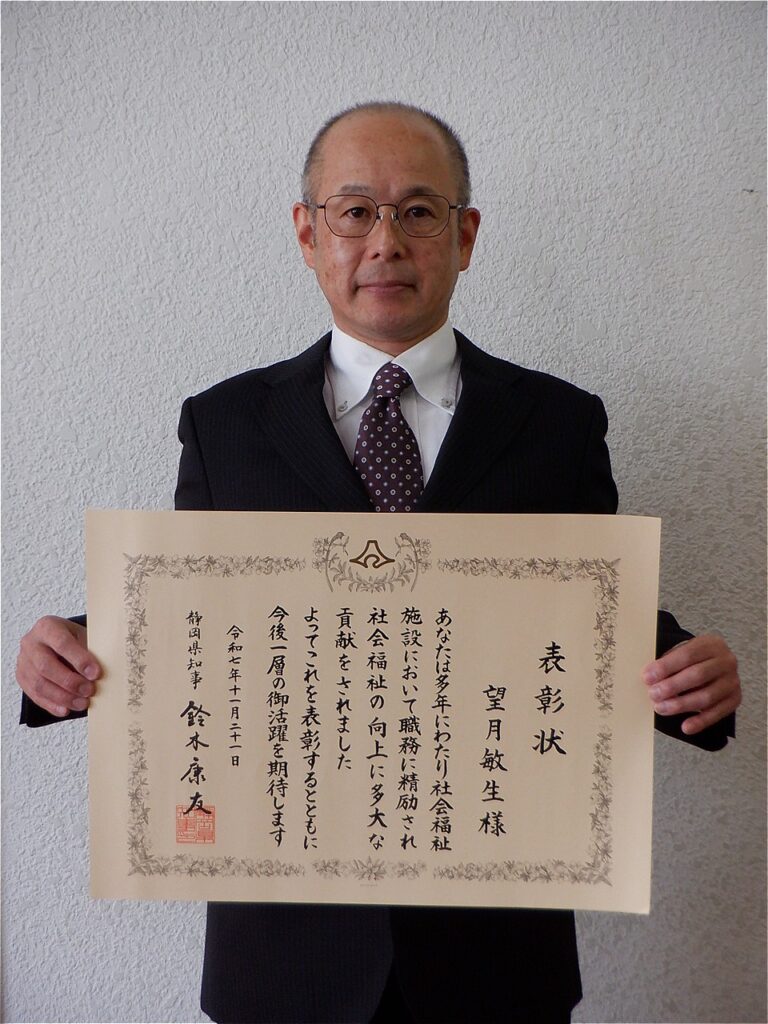 表彰状
望月敏生様
あなたは多年にわたり社会福祉
施設において職務に精励され
社会福祉の向上に多大な
貢献をされました
よってこれを表彰するとともに
今後一層の御活躍を期待します
令和七年十一月二十一日
静岡県知事 鈴木康友